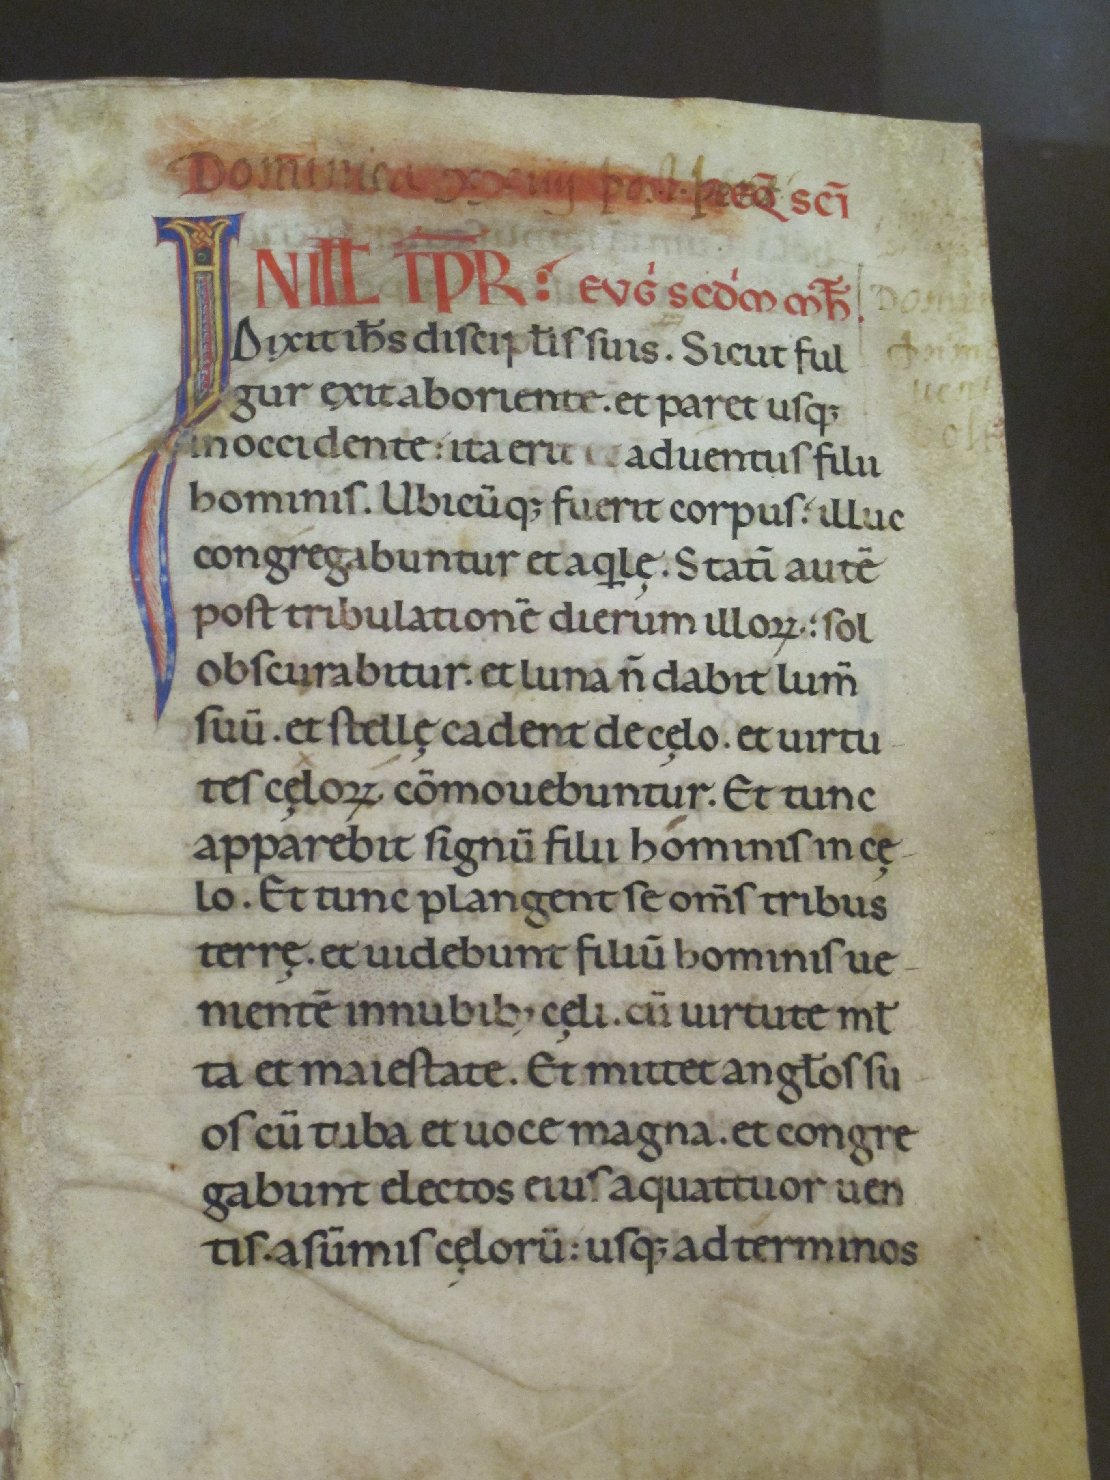 Dominica xxiiij post pent
seq̄ sc̄i
IN ILL T̄PR: EVḠ SCD̄M MT̄H.
Dixit ih̄s discip̄lis suis. Sicut ful
gur exit aboriente. et paret usq;
inoccidente: ita erit aduentus filii
hominis. Ubicūq; fuerit corpus: illuc
congregabuntur et aq̄lę. Statī autē
post tribulationē dierum illoꝝ: sol
obscurabitur. et luna n̄ dabit lum̄
suū. et stellę cadent de cęlo. et uirtu-
tes cęloꝝ cōmouebuntur. Et tunc
apparebit signū filii hominis in cę-
lo. Et tunc plangent se om̄s tribus
terrę. et uidebunt filiū hominis ue-
nientē innubib; cęli. cū uirtute ml̄-
ta et maiestate. Et mittet angl̄os su-
os cū tuba et uoce magna. et congre
gabunt electos eius aquattuor uen
tis. asūmis cęlorū: usq; ad terminos